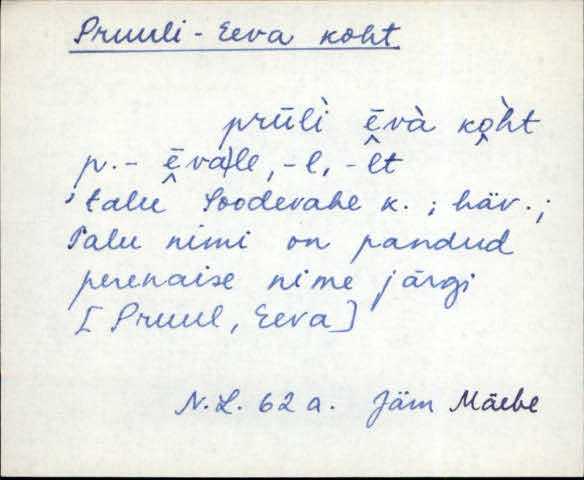 Pruuli-Eeva koht
prūlì ēvà kòht
p.- ēvalle, -l, -lt
talu Soodevahe k.; häv.;
Talu nimi on pandud
perenaise nime järgi
[Pruul, Eeva]
N.L. 62 a. Jäm Mäebe